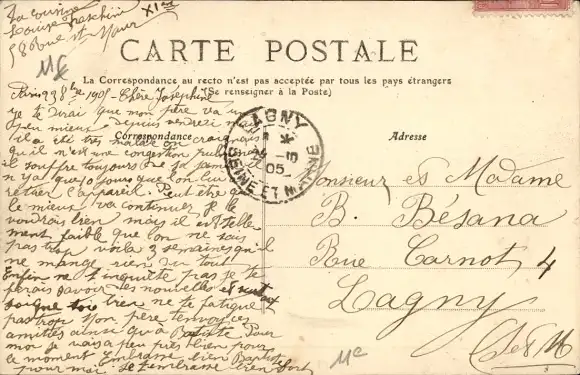 Ta cousine
Louise
58 Rue St Maur XIme
CARTE POSTALE
La Correspondance au recto n'est pas acceptée par tous les pays étrangers
(Se renseigner à la Poste)
Correspondance
Adresse
Paris 1905 Chère Joséphine
je te dirai que mon père va un
peu mieux depuis vendredi mais
il a été très malade on craignait
qu'il n'eut une congestion
il souffre toujours
n'y a que jours que on lui
retirer l'appareil. Peut être que
le mieux va continuer je le
voudrais bien mais il est telle
ment faible que on ne sais
pas trop voila 3 semaines qu'il
ne mange rien du tout
Enfin ne t'inquiète pas je te
ferais savoir des nouvelles et surtout
soigne toi bien ne te fatigue
pas trop Mon père t'envoi ces
amitiés ainsi qu'à Batiste Pour
moi je vais à peu près bien pour
le moment Embrasse bien Baptiste
pour moi. Je t'embrasse bien fort
LAGNY
SEINE ET MARNE
05
Monsieur et Madame
B. Bésana
Rue Carnot 4
Lagny